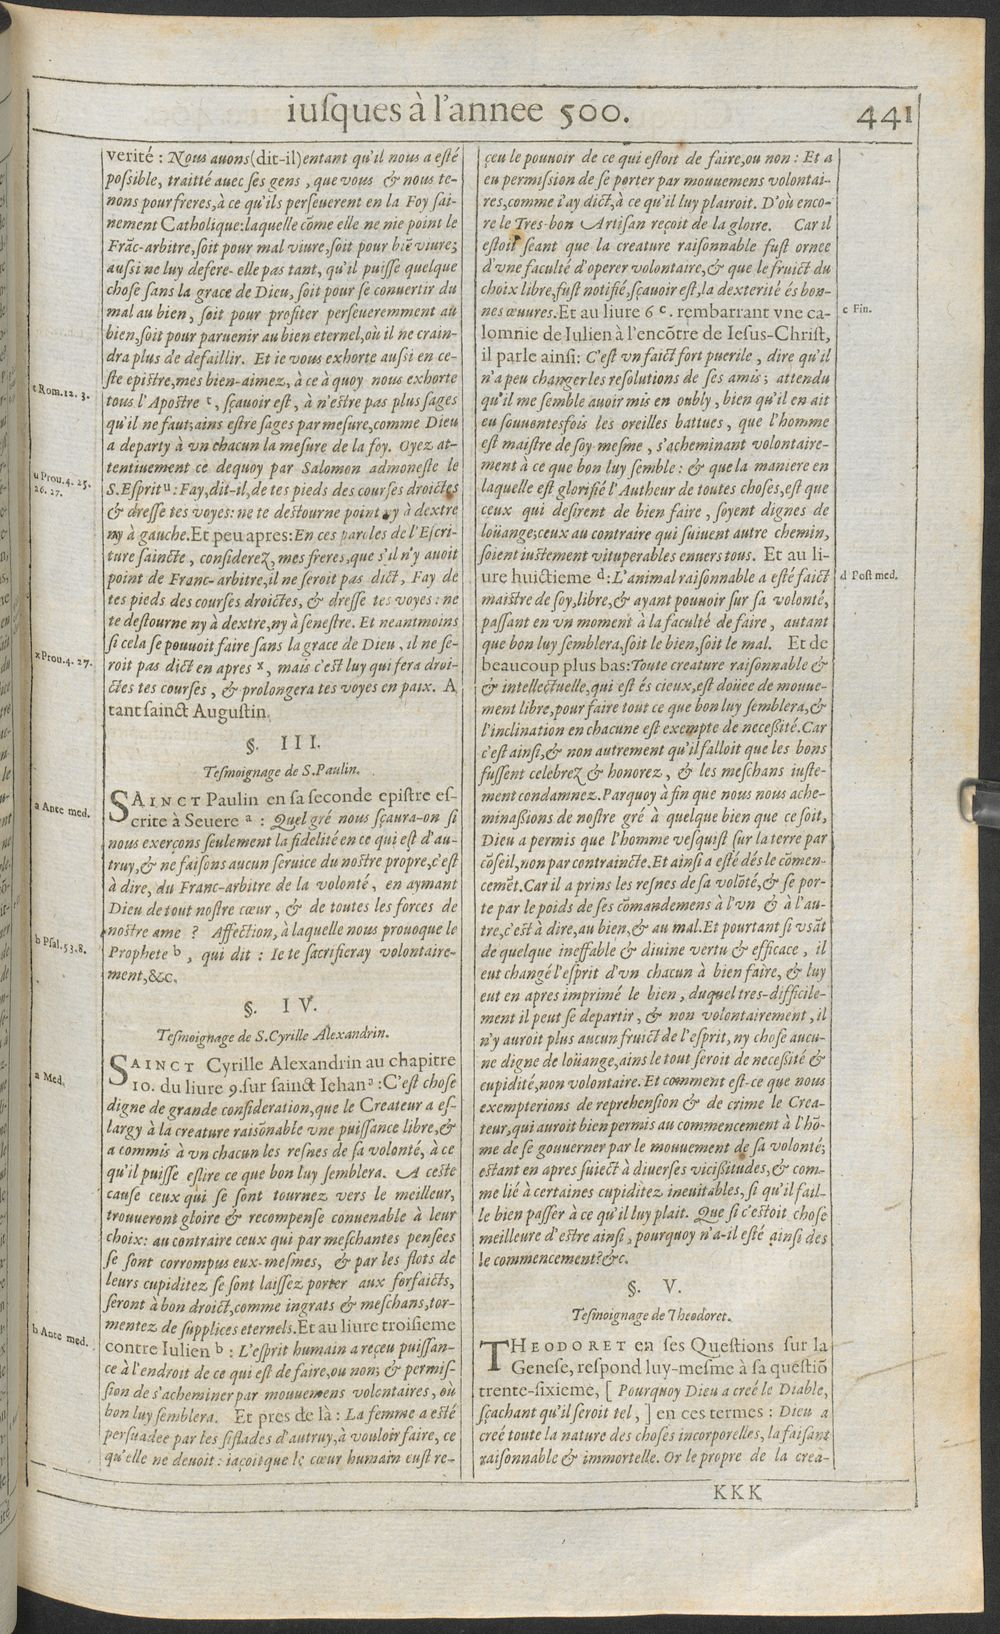 iuſques à l'annee 500.
441
verité : Nous auons (dit-il) entant qu'il nous a eſté
poſsible, traitté auec ſes gens, que vous & nous te-
nons pour freres, à ce qu'ils perſeuerent en la Foy ſai-
nement Catholique: laquelle cõme elle ne nie point le
Frãc-arbitre, ſoit pour mal viure, ſoit pour biẽ viure;
auſsi ne luy defere-elle pas tant, qu'il puiſſe quelque
choſe ſans la grace de Dieu, ſoit pour ſe conuertir du
mal au bien, ſoit pour profiter perſeueremment au
bien, ſoit pour paruenir au bien eternel, où il ne crain-
dra plus de defaillir. Et ie vous exhorte auſsi en ce-
ſte epiſtre, mes bien-aimez, à ce à quoy nous exhorte
t Rom. 12. 3.
tous l'Apoſtre t, ſçauoir eſt, à n'eſtre pas plus ſages
qu'il ne faut; ains eſtre ſages par meſure, comme Dieu
a departy à vn chacun la meſure de la foy. Oyez at-
tentiuement ce dequoy par Salomon admoneſte le
u Prou. 4. 25.
26. 27.
S. Eſprit u : Fay, dit-il, de tes pieds des courſes droictes
& dreſſe tes voyes: ne te deſtourne point ny à dextre
ny à gauche. Et peu apres: En ces paroles de l'Eſcri-
ture ſaincte, conſiderez, mes freres, que s'il n'y auoit
point de Franc-arbitre, il ne ſeroit pas dict, Fay de
tes pieds des courſes droictes, & dreſſe tes voyes: ne
te deſtourne ny à dextre, ny à ſeneſtre. Et neantmoins
ſi cela ſe pouuoit faire ſans la grace de Dieu, il ne ſe-
x Prou. 4. 27.
roit pas dict en apres x, mais c'eſt luy qui fera droi-
ctes tes courſes, & prolongera tes voyes en paix. A
tant ſainct Auguſtin.
§. III.
Teſmoignage de S. Paulin.
SAINCT Paulin en ſa ſeconde epiſtre eſ-
a Ante med.
crite à Seuere a : Quel gré nous ſçaura-on ſi
nous exerçons ſeulement la fidelité en ce qui eſt d'au-
truy, & ne faiſons aucun ſeruice du noſtre propre, c'eſt
à dire, du Franc-arbitre de la volonté, en aymant
Dieu de tout noſtre cœur, & de toutes les forces de
noſtre ame ? Affection, à laquelle nous prouoque le
b Pſal. 53. 8.
Prophete b, qui dit : Ie te ſacrifieray volontaire-
ment, &c.
§. IV.
Teſmoignage de S. Cyrille Alexandrin.
SAINCT Cyrille Alexandrin au chapitre
a Med.
10. du liure 9. ſur ſainct Iehan a : C'eſt choſe
digne de grande conſideration, que le Createur a eſ-
largy à la creature raiſõnable vne puiſſance libre, &
a commis à vn chacun les reſnes de ſa volonté, à ce
qu'il puiſſe eſlire ce que bon luy ſemblera. A ceſte
cauſe ceux qui ſe ſont tournez vers le meilleur,
trouueront gloire & recompenſe conuenable à leur
choix: au contraire ceux qui par meſchantes penſees
ſe ſont corrompus eux-meſmes, & par les flots de
leurs cupiditez ſe ſont laiſſez porter aux forfaicts,
ſeront à bon droict, comme ingrats & meſchans, tor-
mentez de ſupplices eternels. Et au liure troiſieme
b Ante med.
contre Iulien b : L'eſprit humain a reçeu puiſſan-
ce à l'endroit de ce qui eſt de faire, ou non; & permiſ-
ſion de s'acheminer par mouuemens volontaires, où
bon luy ſemblera. Et pres de là : La femme a eſté
perſuadee par les ſiſlades d'autruy, à vouloir faire, ce
qu'elle ne deuoit : iaçoit que le cœur humain euſt re-
çeu le pouuoir de ce qui eſtoit de faire, ou non : Et a
eu permiſsion de ſe porter par mouuemens volontai-
res, comme i'ay dict, à ce qu'il luy plairoit. D'où enco-
re le Tres-bon Artiſan reçoit de la gloire. Car il
eſtoit ſeant que la creature raiſonnable fuſt ornee
d'vne faculté d'operer volontaire, & que le fruict du
choix libre, fuſt notifié, ſçauoir eſt, la dexterité és bon-
nes œuures. Et au liure 6 c. rembarrant vne ca-
c Fin.
lomnie de Iulien à l'encõtre de Ieſus-Chriſt,
il parle ainſi: C'eſt vn faict fort puerile, dire qu'il
n'a peu changer les reſolutions de ſes amis; attendu
qu'il me ſemble auoir mis en oubly, bien qu'il en ait
eu ſouuentesfois les oreilles battues, que l'homme
eſt maiſtre de ſoy-meſme, s'acheminant volontaire-
ment à ce que bon luy ſemble: & que la maniere en
laquelle eſt glorifié l'Autheur de toutes choſes, eſt que
ceux qui deſirent de bien faire, ſoyent dignes de
loüange; ceux au contraire qui ſuiuent autre chemin,
ſoient iuſtement vituperables enuers tous. Et au li-
ure huictieme d : L'animal raiſonnable a eſté faict
d Poſt med.
maiſtre de ſoy, libre, & ayant pouuoir ſur ſa volonté,
paſſant en vn moment à la faculté de faire, autant
que bon luy ſemblera, ſoit le bien, ſoit le mal. Et de
beaucoup plus bas: Toute creature raiſonnable &
& intellectuelle, qui eſt és cieux, eſt doüee de mouue-
ment libre, pour faire tout ce que bon luy ſemblera, &
l'inclination en chacune eſt exempte de neceßité. Car
c'eſt ainſi, & non autrement qu'il falloit que les bons
fuſſent celebrez & honorez, & les meſchans iuſte-
ment condamnez. Parquoy à fin que nous nous ache-
minaßions de noſtre gré à quelque bien que ce ſoit,
Dieu a permis que l'homme veſquiſt ſur la terre par
cõſeil, non par contraincte. Et ainſi a eſté dés le cõmen-
cemẽt. Car il a prins les reſnes de ſa volõté, & ſe por-
te par le poids de ſes cõmandemens à l'vn & à l'au-
tre, c'eſt à dire, au bien, & au mal. Et pourtant ſi vſãt
de quelque ineffable & diuine vertu & efficace, il
eut changé l'eſprit d'vn chacun à bien faire, & luy
eut en apres imprimé le bien, duquel tres-difficile-
ment il peut ſe departir, & non volontairement, il
n'y auroit plus aucun fruict de l'eſprit, ny choſe aucu-
ne digne de loüange, ains le tout ſeroit de neceſsité &
cupidité, non volontaire. Et comment eſt-ce que nous
exempterions de reprehenſion & de crime le Crea-
teur, qui auroit bien permis au commencement à l'hõ-
me de ſe gouuerner par le mouuement de ſa volonté;
eſtant en apres ſuiect à diuerſes vicißitudes, & com-
me lié à certaines cupiditez ineuitables, ſi qu'il fail-
le bien paſſer à ce qu'il luy plait. Que ſi c'eſtoit choſe
meilleure d'eſtre ainſi, pourquoy n'a-il eſté ainſi des
le commencement? &c.
§. V.
Teſmoignage de Theodoret.
THEODORET en ſes Queſtions ſur la
Geneſe, reſpond luy-meſme à ſa queſtiõ
trente-ſixieme, [ Pourquoy Dieu a creé le Diable,
ſçachant qu'il ſeroit tel, ] en ces termes : Dieu a
creé toute la nature des choſes incorporelles, la faiſant
raiſonnable & immortelle. Or le propre de la crea-
KKK